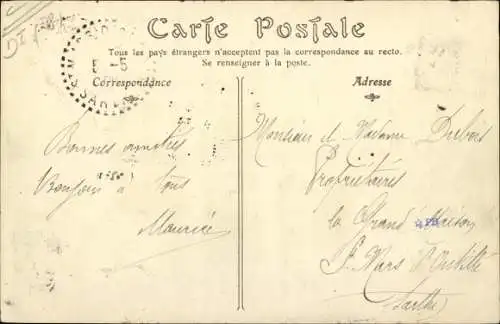 Carte Postale
Tous les pays étrangers n'acceptent pas la correspondance au recto.
Se renseigner à la poste.
Correspondance
Adresse
Bonnes amitiés
Bonjour à tous
Maurice
Monsieur et Madame Dubois
Propriétaires
la Grand Maison
St Mars d'Outillé
Sarthe